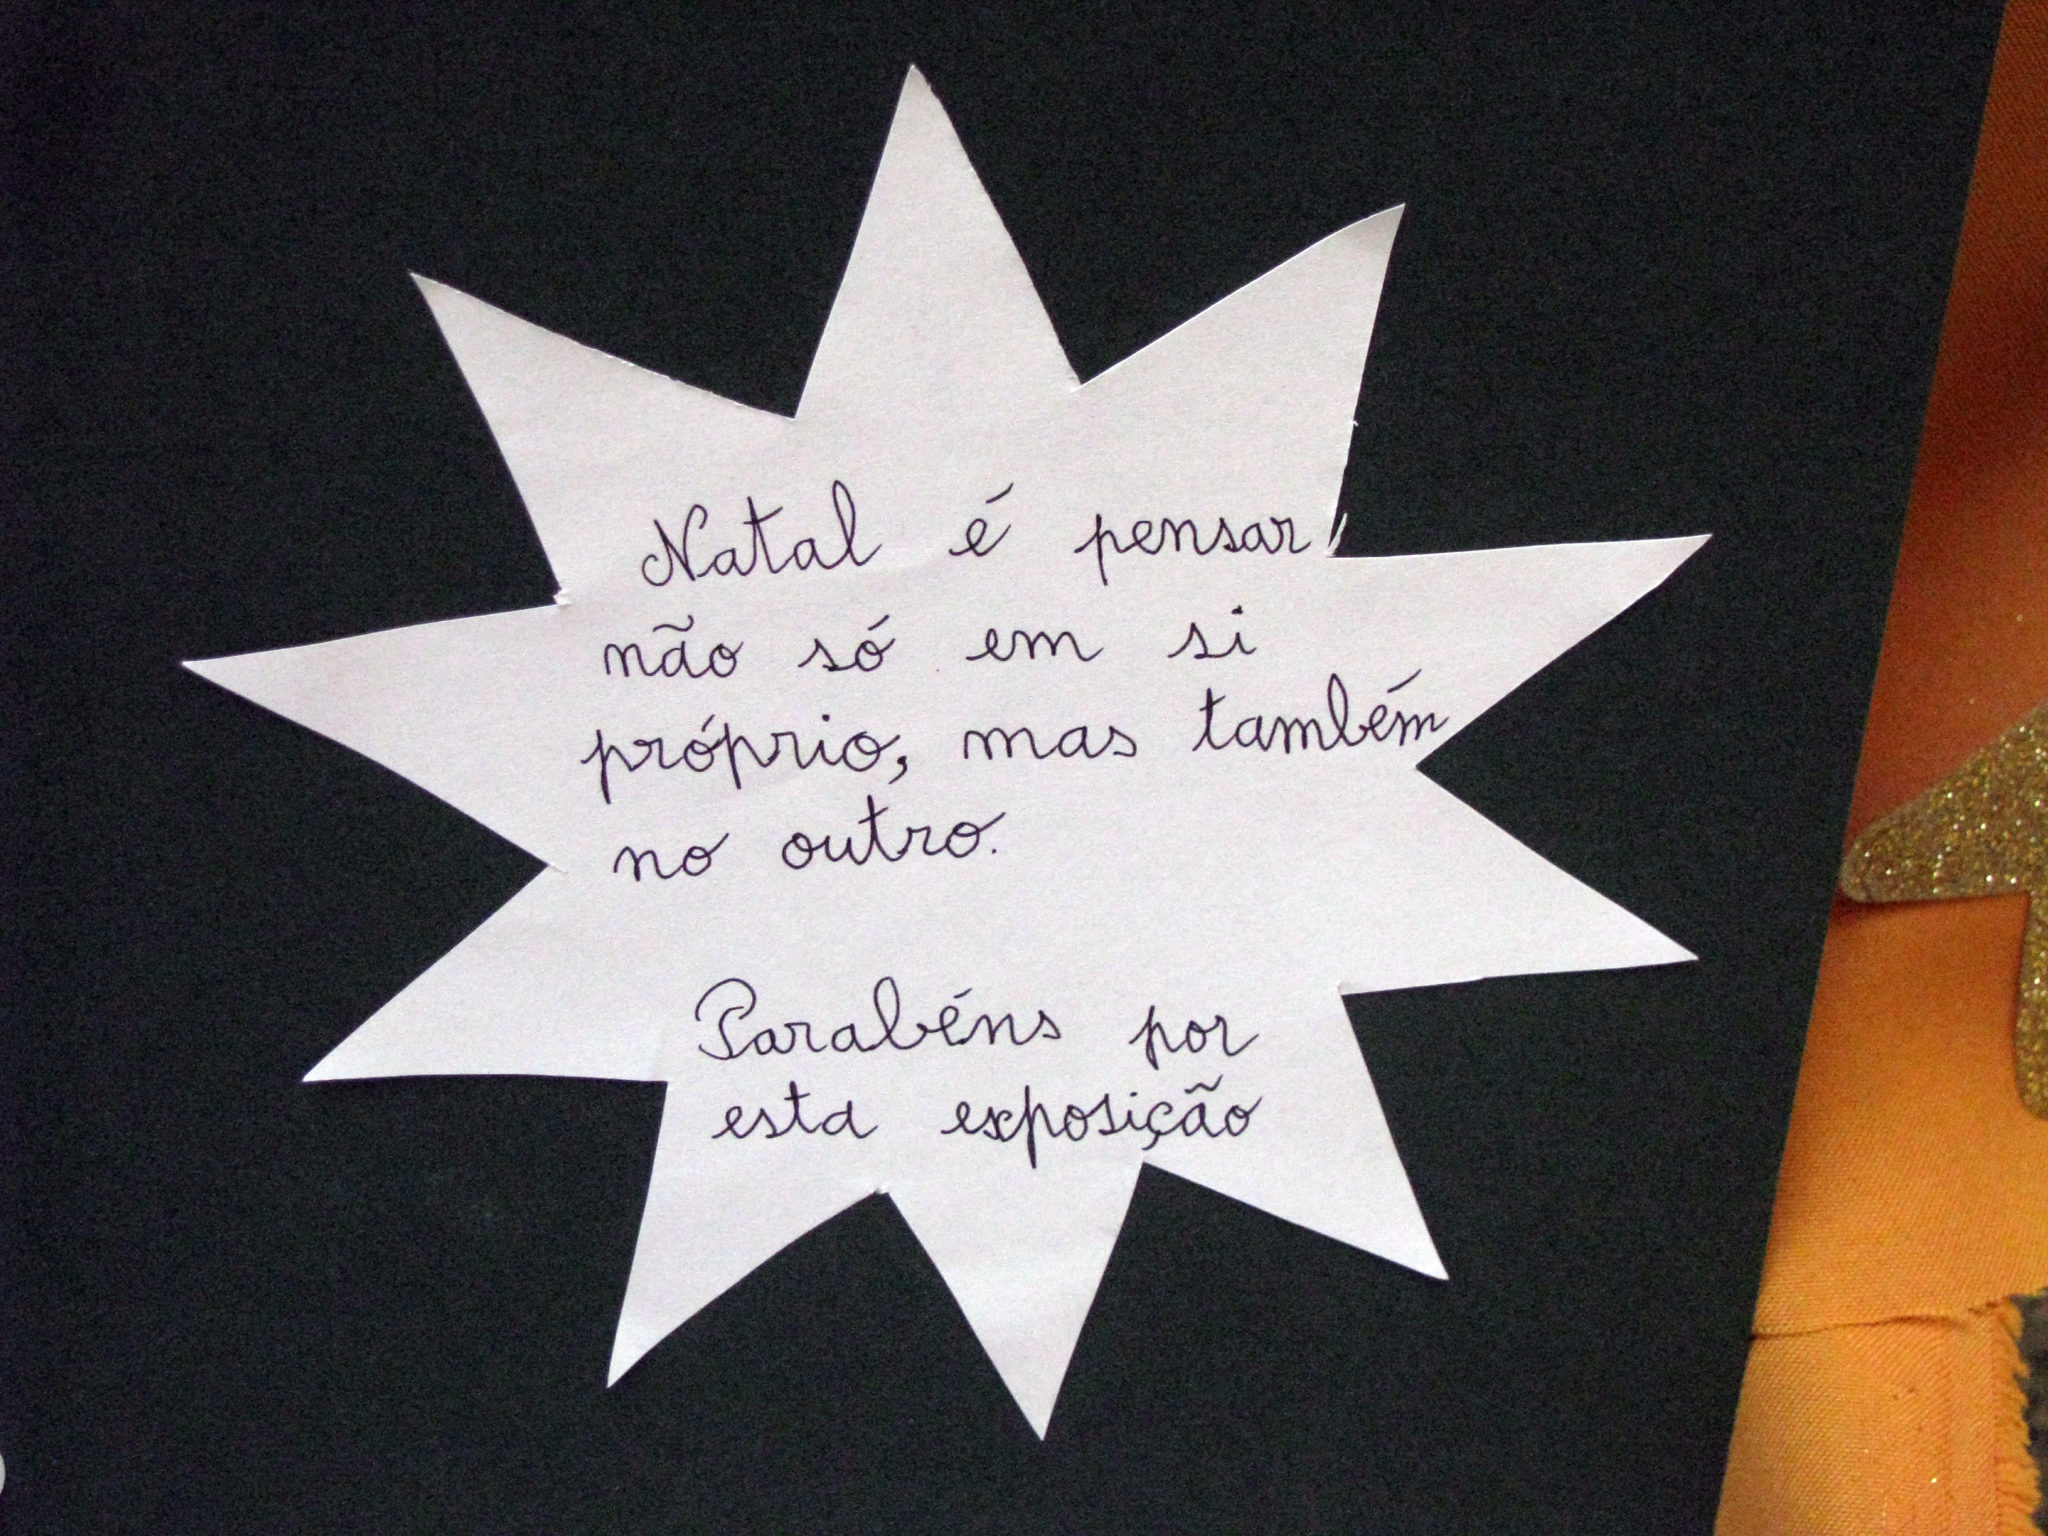 Natal é pensar
não só em si
próprio, mas também
no outro.
Parabéns por
esta exposição